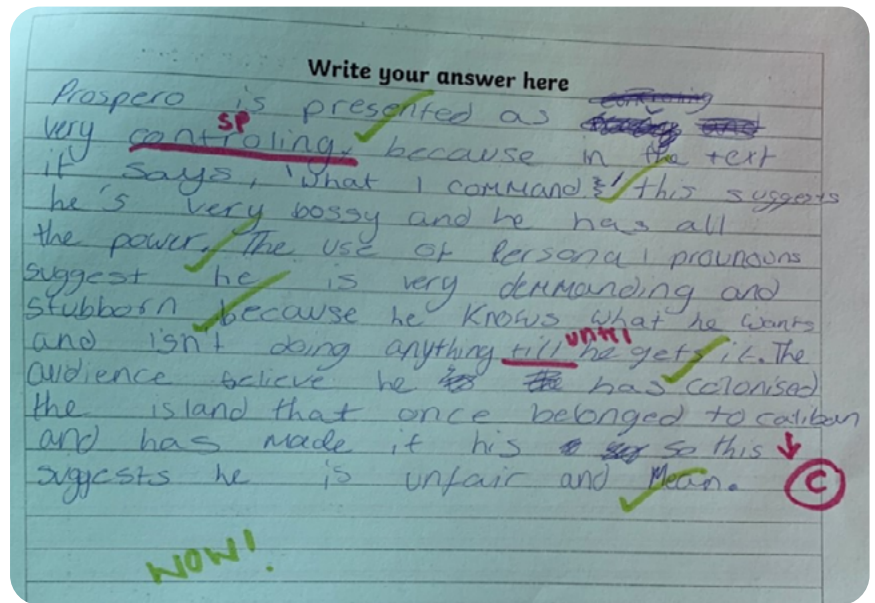 Write your answer here
Prospero is presented as
SP
very controling, because in the text
it says, 'What I command &' this suggests
he's very bossy and he has all
the power. The use of Personal prounouns
suggest he is very demmanding and
stubborn because he knows what he wants
until
and isn't doing anything till he gets it. The
audience believe he has colonised
the island that once belonged to caliban
and has made it his so this
suggests he is unfair and Mean.
C
WOW!